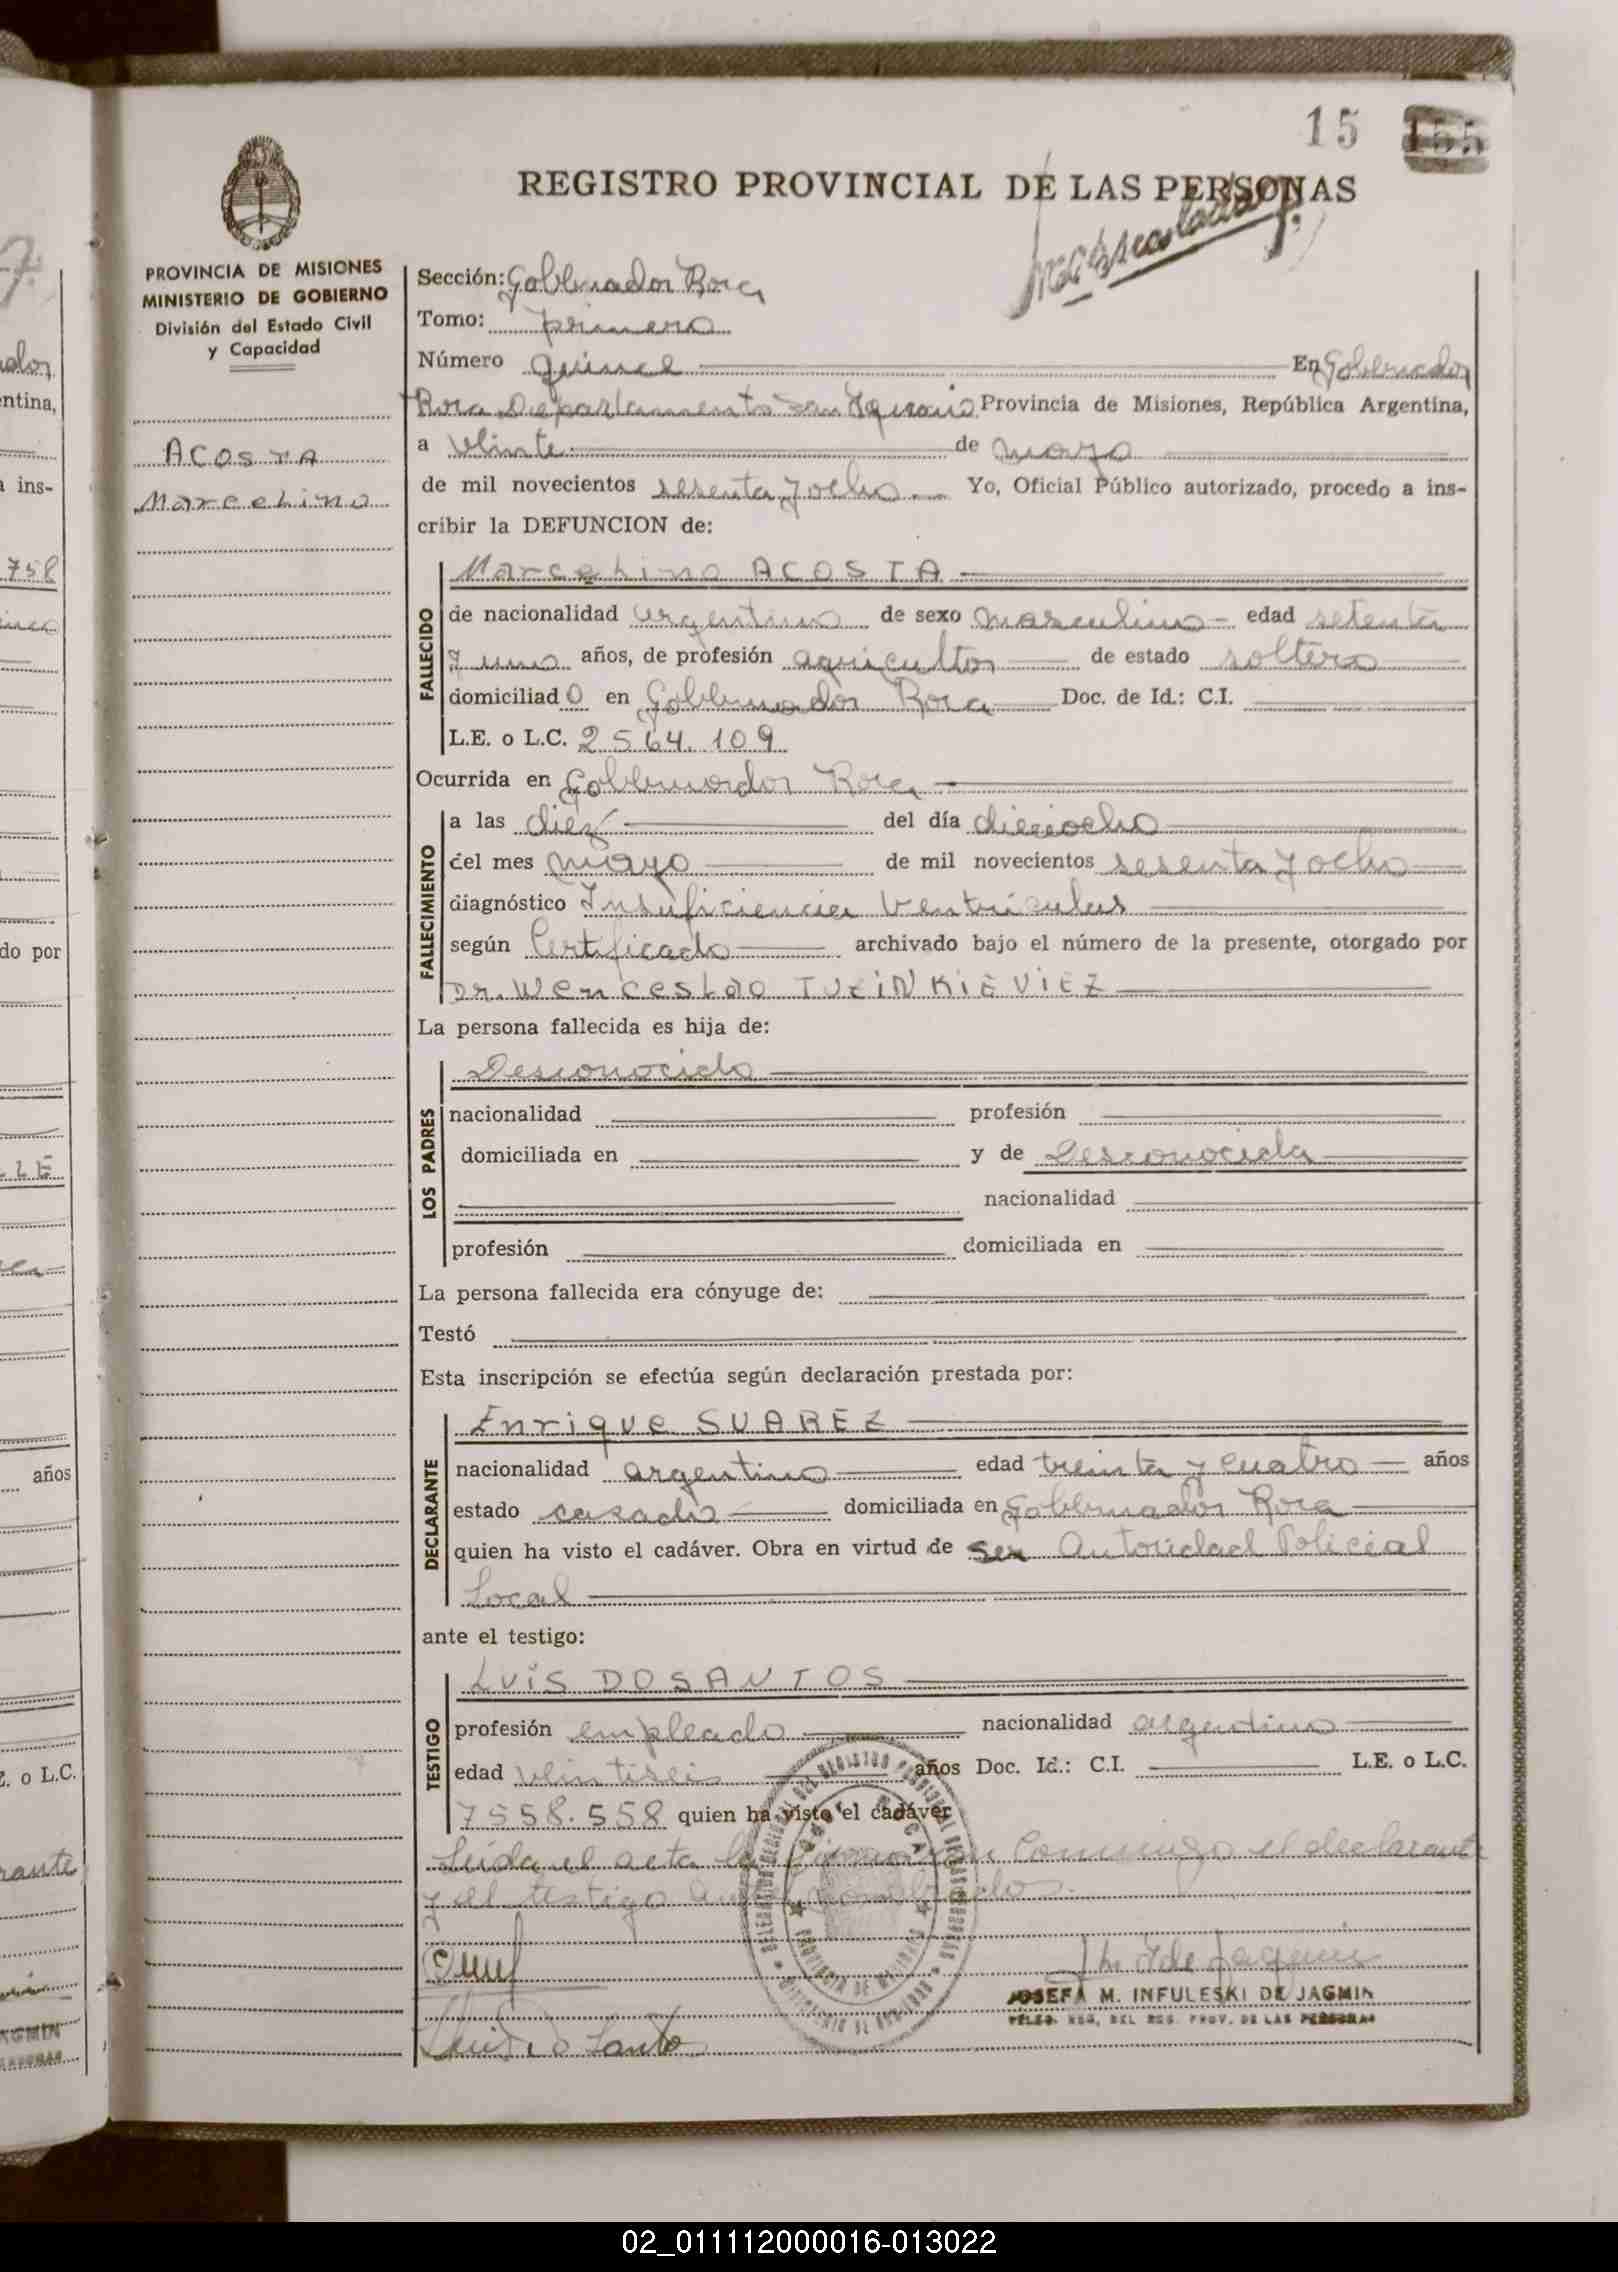 15 155
REGISTRO PROVINCIAL DE LAS PERSONAS
PROVINCIA DE MISIONES
MINISTERIO DE GOBIERNO
División del Estado Civil
y Capacidad
ACOSTA
Marcelino
Sección: Gobernador Roca
Tomo: primero
Número quince En Gobernador
Roca Departamento San Ignacio Provincia de Misiones, República Argentina,
a veinte de mayo
de mil novecientos sesenta y ocho Yo, Oficial Público autorizado, procedo a ins-
cribir la DEFUNCION de:
Marcelino ACOSTA
FALLECIDO
de nacionalidad argentino de sexo masculino - edad setenta
y uno años, de profesión agricultor de estado soltero
domiciliad o en Gobernador Roca Doc. de Id.: C.I.
L.E. o L.C. 2564.109
Ocurrida en Gobernador Roca
FALLECIMIENTO
a las diez del día dieciocho
del mes mayo de mil novecientos sesenta y ocho
diagnóstico Insuficiencia Ventricular
según Certificado archivado bajo el número de la presente, otorgado por
Dr. Wenceslao TUZINKIEVIEZ
La persona fallecida es hija de:
LOS PADRES
Desconocido
nacionalidad profesión
domiciliada en y de Desconocida
nacionalidad
profesión domiciliada en
La persona fallecida era cónyuge de:
Testó
Esta inscripción se efectúa según declaración prestada por:
DECLARANTE
Enrique SUAREZ
nacionalidad argentino edad treinta y cuatro años
estado casado domiciliada en Gobernador Roca
quien ha visto el cadáver. Obra en virtud de ser Autoridad Policial
Local
ante el testigo:
TESTIGO
LUIS DOSANTOS
profesión empleado nacionalidad argentino
edad veintiseis años Doc. Id.: C.I. L.E. o L.C.
7558.558 quien ha visto el cadáver
Leída el acta la firman Conmigo el declarante
y el testigo
Luis Do Santo
JOSEFA M. INFULESKI DE JAGMIN
DEL REG. PROV. DE LAS PERSONAS
PROVINCIA DE MISIONES
ntina,
a ins-
758
do por
LLE
años
o L.C.
rante
02_011112000016-013022